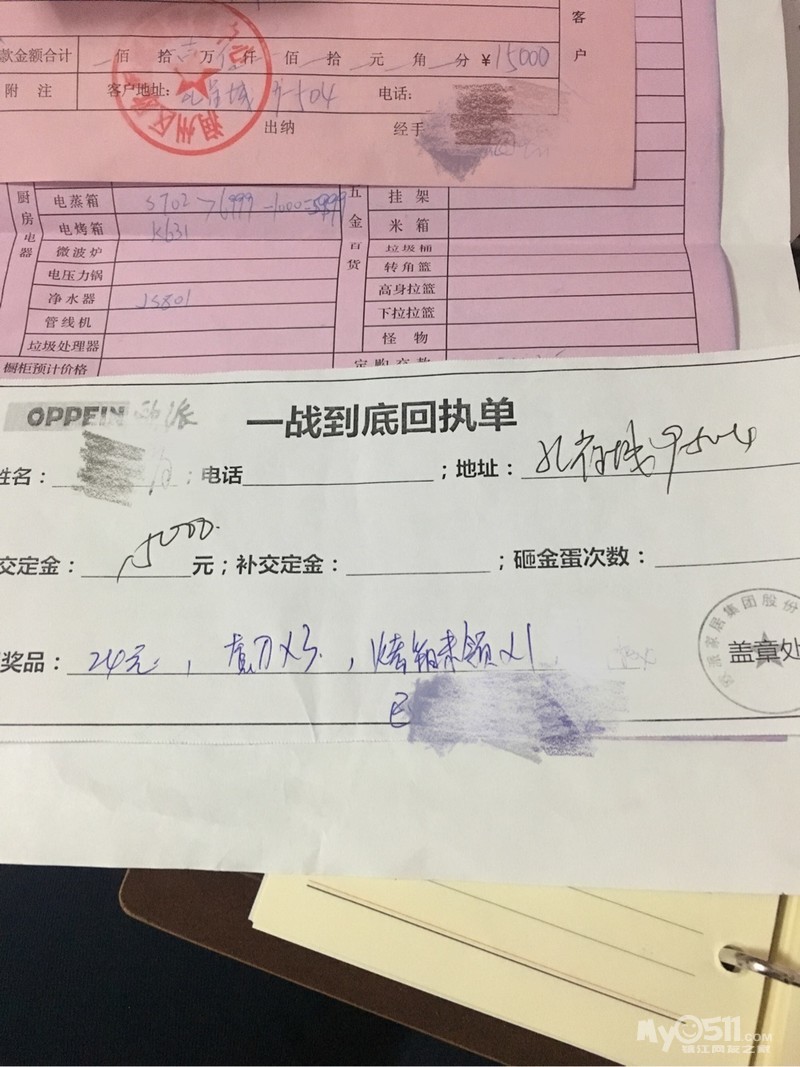 客户
款金额合计 佰 拾 万 仟 佰 拾 元 角 分 ¥15000
附 注 客户地址: 9-504 电话:
出纳 经手
润州区
厨房电器
电蒸箱 S702 >6999-1000=5999
电烤箱 K631
微波炉
电压力锅
净水器 JS801
管线机
垃圾处理器
橱柜预计价格
五金百货
挂 架
米 箱
垃圾桶
转角篮
高身拉篮
下拉拉篮
怪 物
OPPEIN 欧派 一战到底回执单
姓名: ;电话 ;地址: 9-504
交定金: 15000 元;补交定金: ;砸金蛋次数:
奖品: 24元, 套刀X3, 烤箱未领X1
派家居集团股份
盖章处
My0511.COM
镇江网友之家